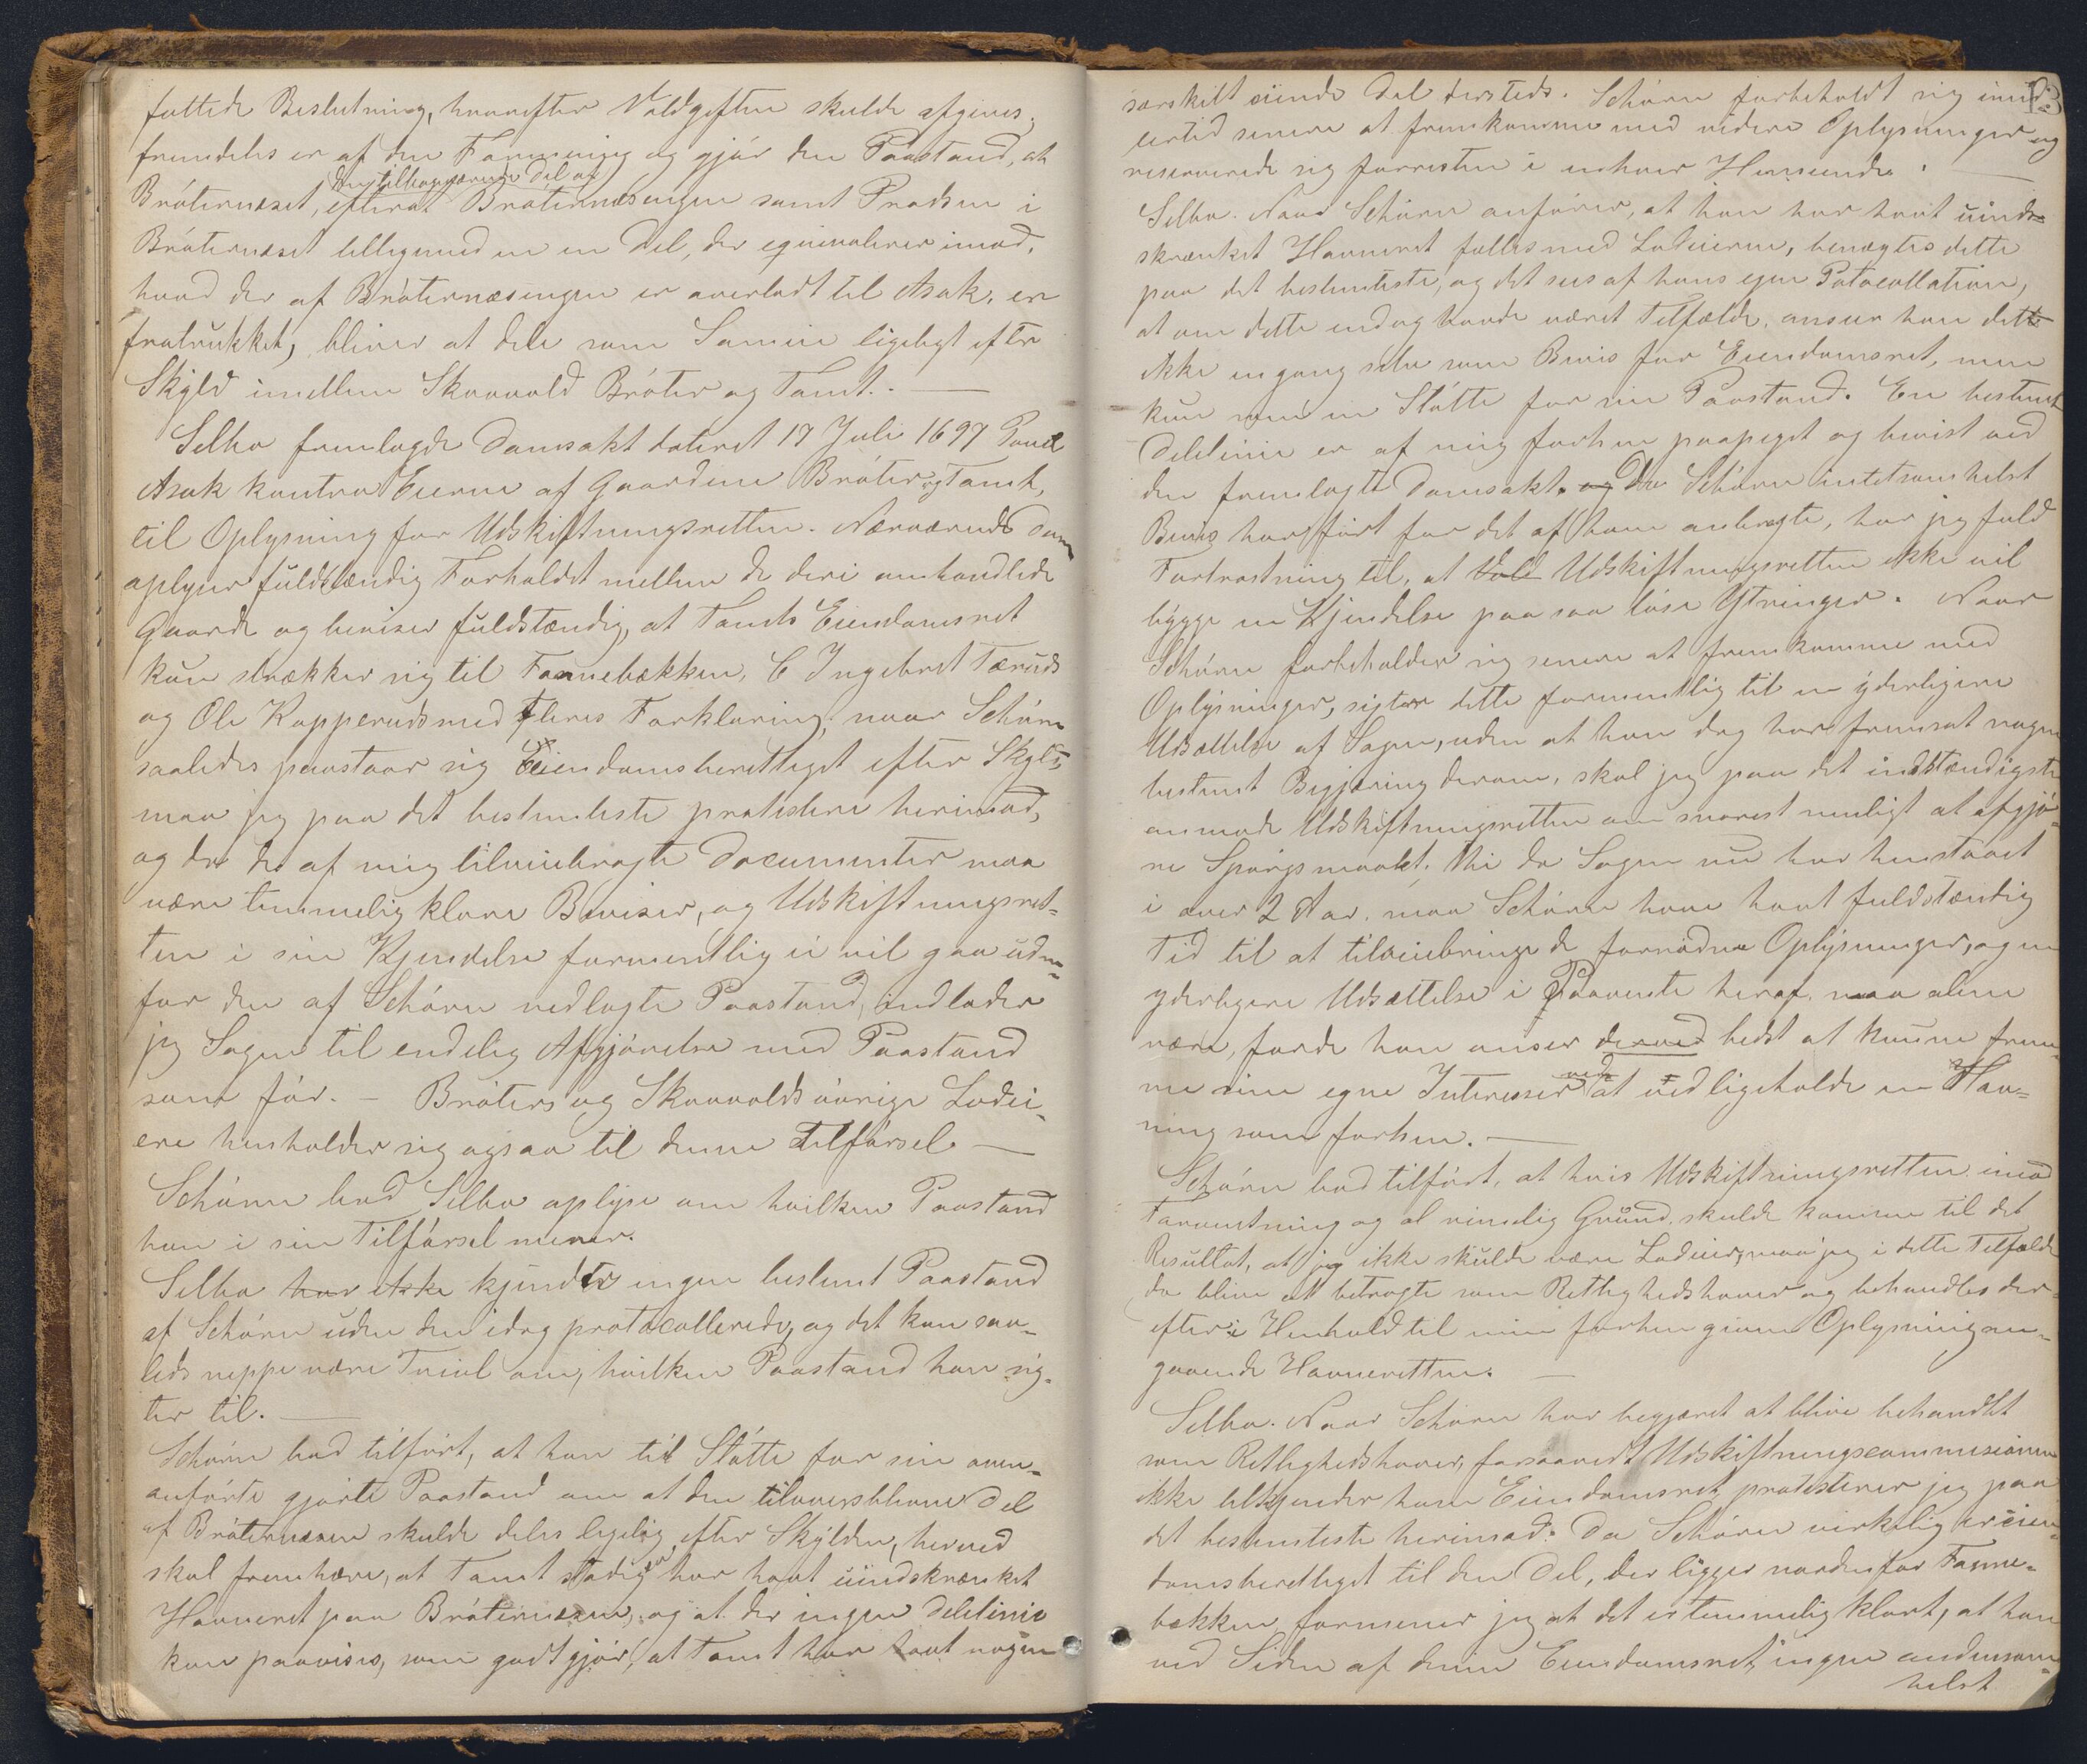 fattede Beslutning, hvorefter Voldgiften skulde afgives,
fremdeles er af den Formening og gjør den Paastand, at
den tilbageværende Del af
Bråternæset, efterat Bråternæsengen samt Pladsen i
Bråternæset tilligemed en en Del, der eqvivalerer imod,
hvad der af Bråternæsengen er overladt til Asak, er
fratrukket, bliver at dele som Sameie ligeligt efter
Skyld imellem Skovvold Bråter og Tomt. —
Selbo fremlagde Domsakt dateret 17 Juli 1697 Poul
Asak kontra Eierne af Gaardene Bråter og Tomt,
til Oplysning for Udskiftningsretten. Nærværende Dom
oplyser fuldstændig Forholdet mellem de deri omhandlede
Gaarde og beviser fuldstændig, at Tomts Eiendomsret
kun strækker sig til Fannebækken, C Ingebret Tæruds
og Ole Kopperuds med fleres Forklaring; naar Schårn
saaledes paastaar sig Eiendomsberettiget efter Skyld,
maa jeg paa det bestemteste protestere herimod,
og da de af mig tilveiebragte Documenter maa
være temmelig klare Beviser, og Udskiftningsret-
ten i sin Kjendelse formentlig ei vil gaa uden-
for den af Schårn nedlagte Paastand, indlader
jeg Sagen til endelig Afgjørelse med Paastand
som før. — Bråters og Skovvolds øvrige Lodei-
ere henholder sig ogsaa til denne Tilførsel —
Schårn bad Selbo oplyse om hvilken Paastand
han i sin Tilførsel mener.
Selbo har ikke kjendte ingen bestemt Paastand
af Schårn uden den idag protocollerede, og det kan saa-
leds neppe være Tvivl om, hvilken Paastand han sig-
ter til. —
Schårn bad tilført, at han til Støtte for sin oven-
anførte gjorte Paastand om at den tiloversblevne Del
af Bråternæsen skulde deles ligelig efter Skylden, herved
skal fremhæve, at Tomt stadig har havt uindskrænket
Havneret paa Bråternæsen, og at der ingen Delelinie
kan paavises, som godtgjør, at Tomt har havt nogen
særskilt eiende Del dersteds. Schårn forbeholdt sig imid-
lertid senere at fremkomme med videre Oplysninger og
reserverede sig forresten i enhver Henseende. —
Selbo. Naar Schårn anfører, at han har havt uind-
skrænket Havneret fælles med Lodeierne, benægtes dette
paa det bestemteste, og det sees af hans egen Potocollation,
at om dette endog havde været Tilfælde, anser han dette
ikke engang selv som Bevis for Eiendomsret, men
kun som en Støtte for sin Paastand. En bestemt
Delelinie er af mig forhen paapeget og bevist ved
den fremlagte Domsakt. og Da Schårn intetsomhelst
Bevis har ført for det af ham anbragte, har jeg fuld
Fortrøstning til, at Vold Udskiftningsretten ikke vil
bygge en Kjendelse paa saa løse Ytringer. Naar
Schårn forbeholder sig senere at fremkomme med
Oplysninger, sigter dette formentlig til en yderligere
Udsættelse af Sagen, uden at han dog har fremsat nogen
bestemt Begjæring derom, skal jeg paa det indstændigste
anmode Udskiftningsretten om snarest muligt at afgjø-
re Spørgsmaalet; thi da Sagen nu har henstaaet
i over 2 Aar, maa Schårn have havt fuldstændig
Tid til at tilveiebringe de fornødne Oplysninger, og en
yderligere Udsættelse i Paavente heraf, maa alene
være, fordi han anser derved bedst at kunne frem-
me sine egne Interesser ved at vedligeholde en Hav-
ning som forhen. —
Schårn bad tilført, at hvis Udskiftningsretten imod
Forventning og al rimelig Grund, skulde komme til det
Resultat, at jeg ikke skulde være Lodeier, maa jeg i dette Tilfælde
da blive at betragte som Rettighedshaver og behandles der-
efter i Henhold til min forhen givne Oplysning an-
gaaende Havneretten. —
Selbo. Naar Schårn har begjæret at blive behandlet
som Rettighedshaver, forsaavidt Udskiftningscommissionen
ikke tilkjender ham Eiendomsret, protesterer jeg paa
det bestemteste herimod. Da Schårn virkelig er eien-
domsberettiget til den Del, der ligger nordenfor Fanne-
bækken formener jeg at det er temmelig klart, at han
ved Siden af denne Eiendomsret, ingen andensom-
helst